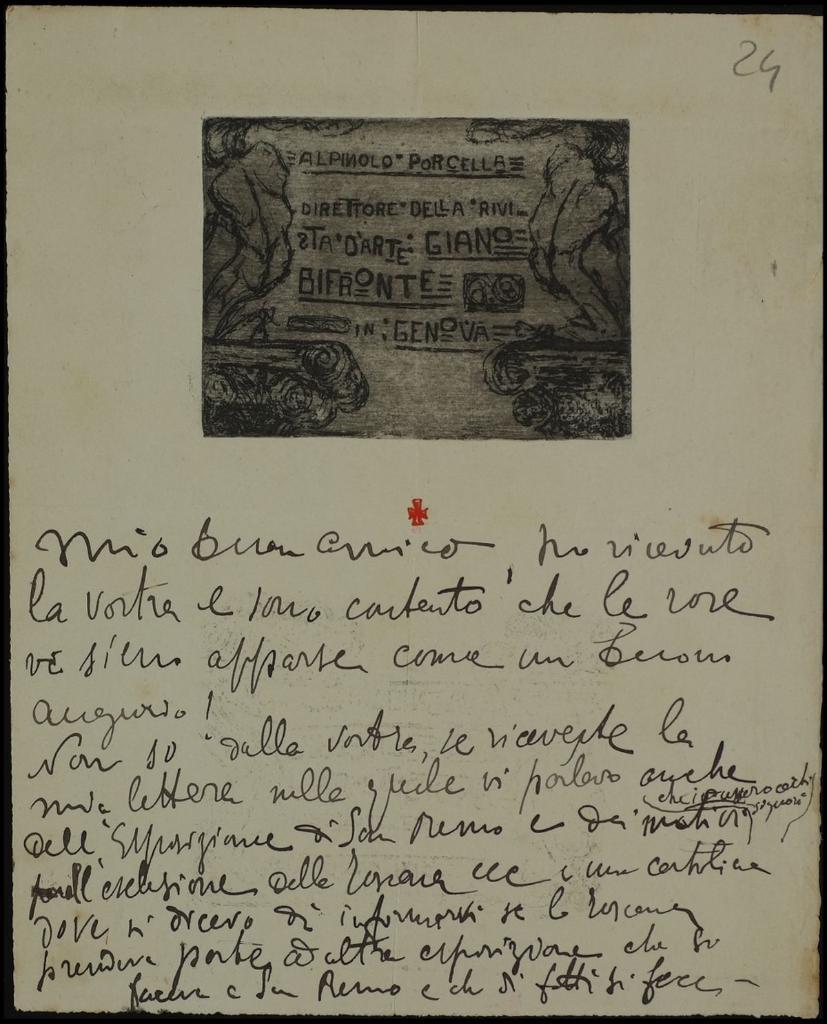 24
ALPINOLO PORCELLA
DIRETTORE DELLA RIVI
STA D'ARTE: GIANO
BIFRONTE
IN: GENOVA
Mio buon amico, ho ricevuto
la vostra e sono contento che le rose
vi sieno apparse come un buono
augurio!
Non so dalla vostra, se riceveste la
mia lettera nella quale vi parlavo anche
dell'Esposizione di San Remo e dei motivi
che certi
signori
l'esclusione della Toscana ecc e una cartolina
dove vi dicevo di informarvi se la Toscana
prendeva parte ad altra esposizione che si
faceva a San Remo e che di fatti si fece –